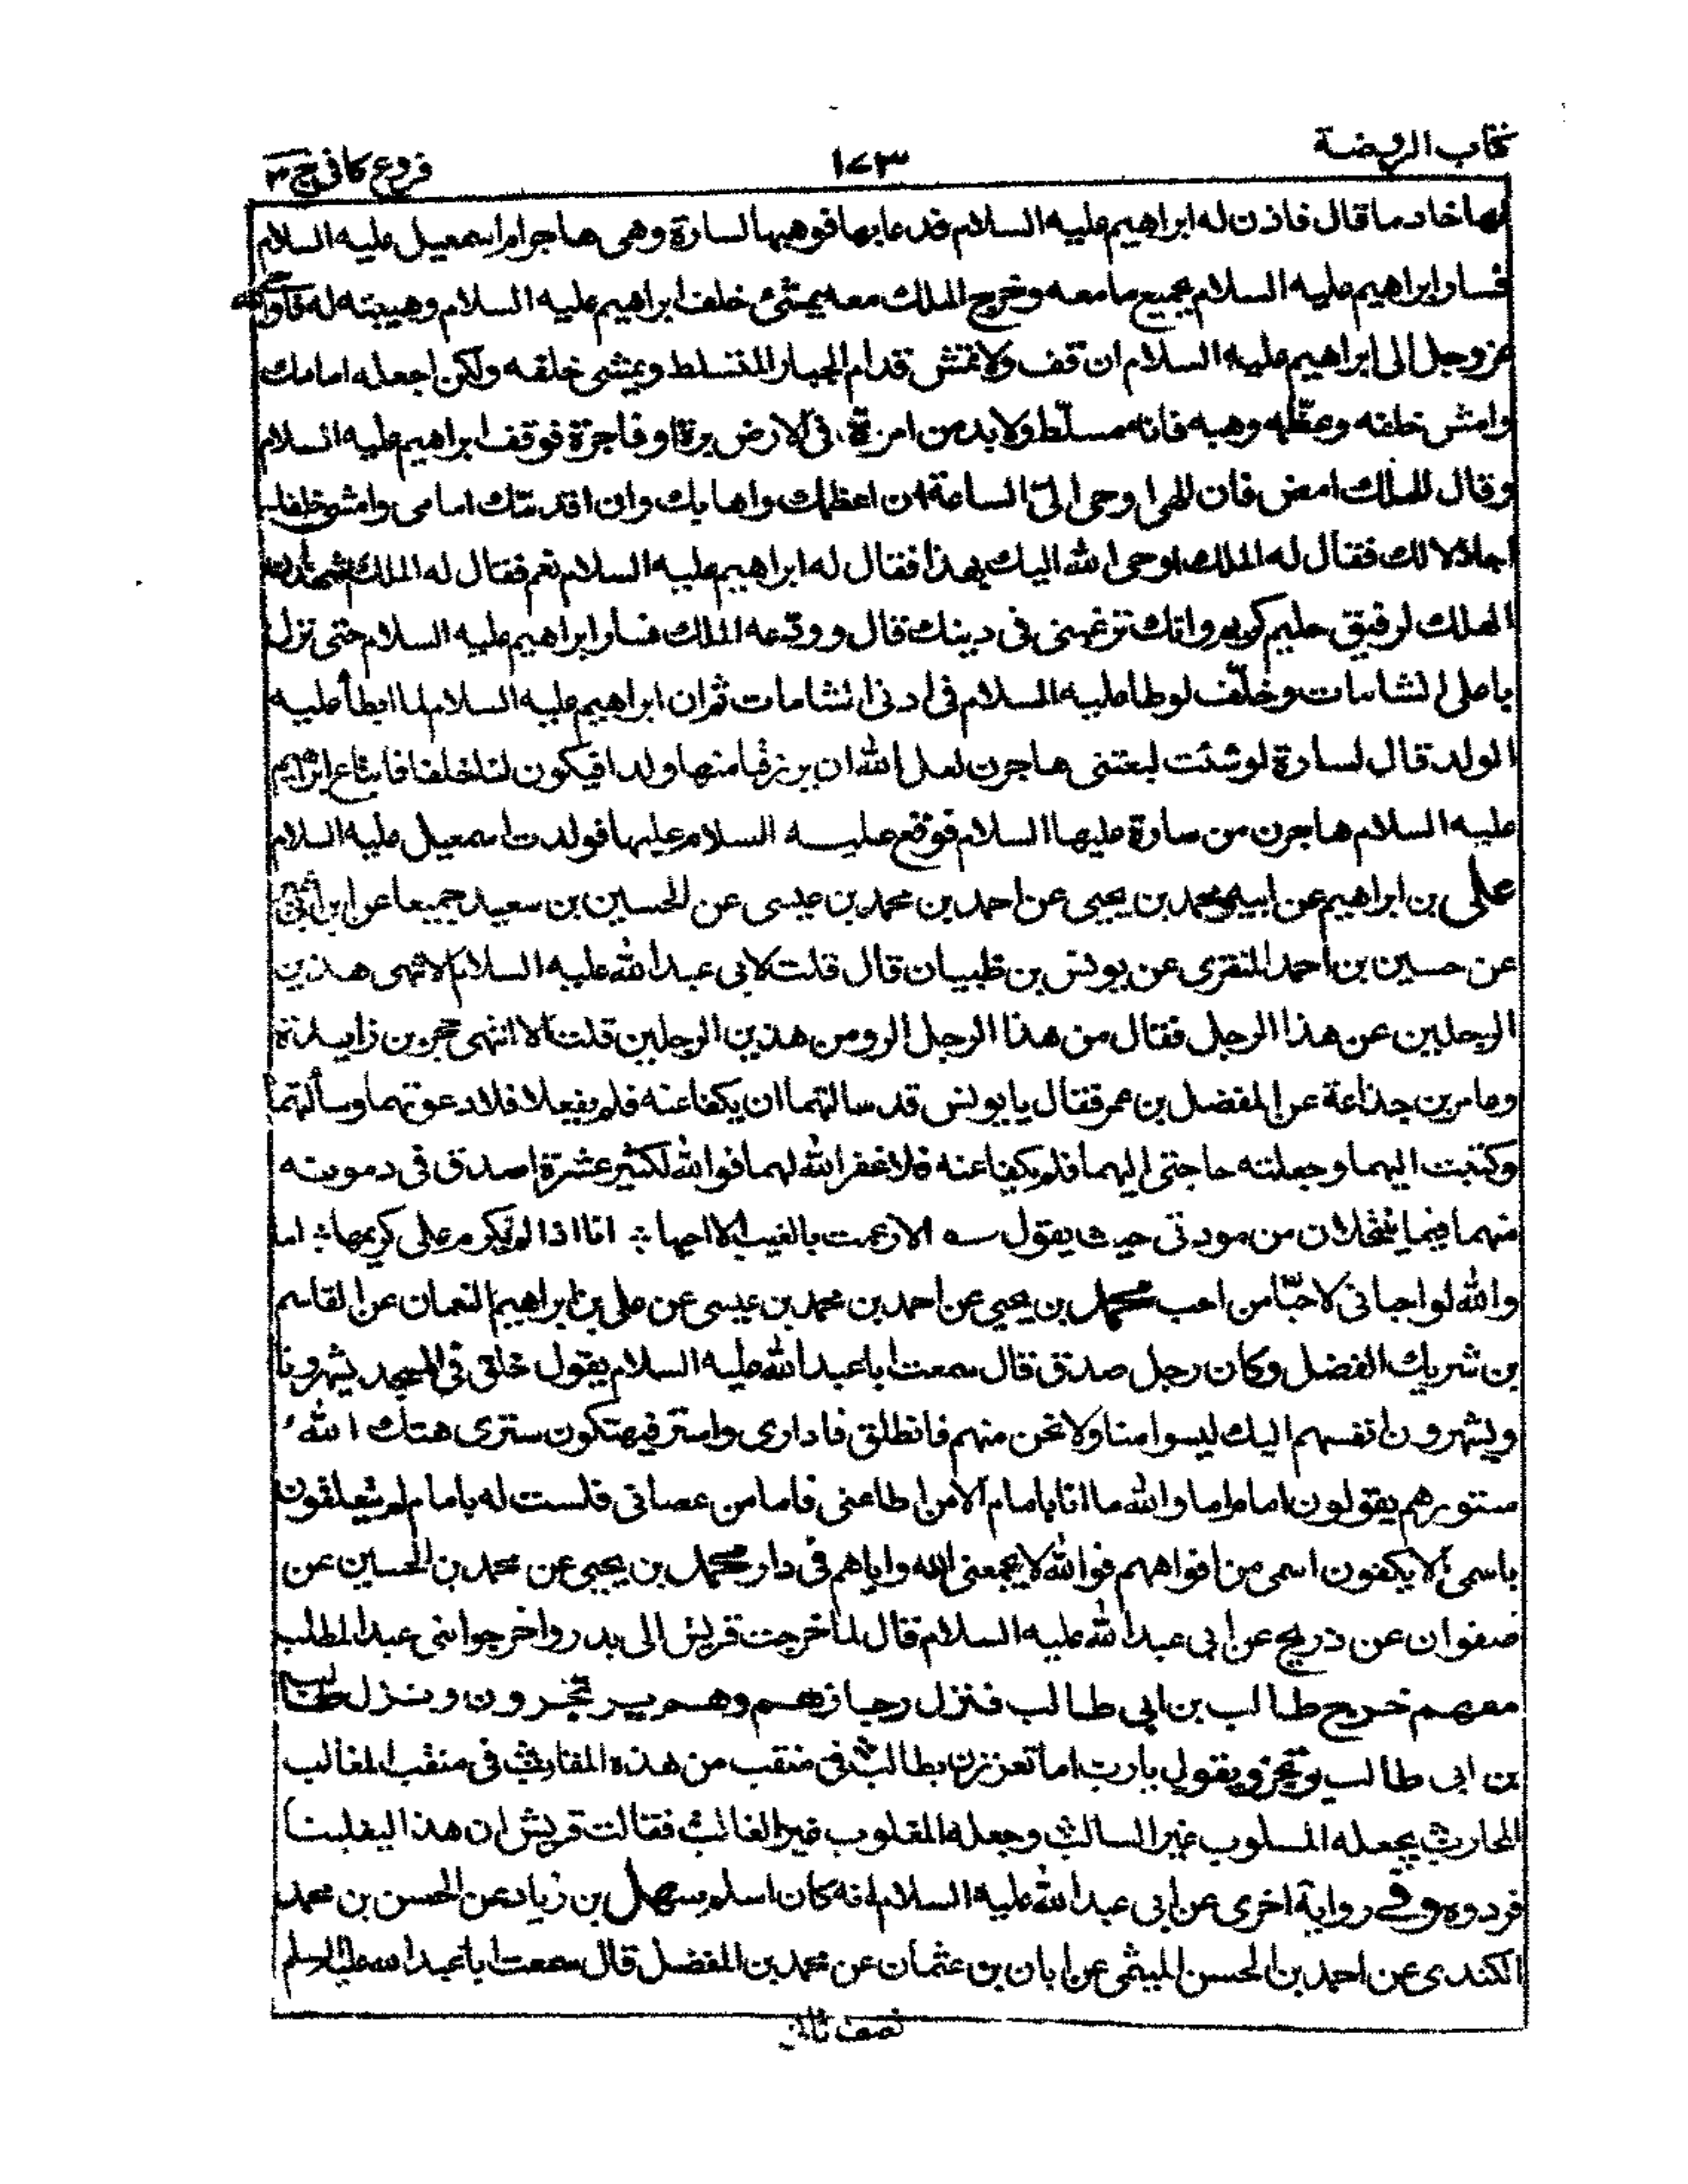 كتاب الروضة
١٧٣
فروع كافي ج ٣
لها خادما قال فاذن له ابراهيم عليه السلام فدعا بها فوهبها لسارة وهى هاجر ام اسمعيل عليه السلام
فسار ابراهيم عليه السلام بجميع ما معه وخرج الملك معه يمشى خلف ابراهيم عليه السلام وهيبته له
عز وجل الى ابراهيم عليه السلام ان قف ولا تمش قدام الجبار المتسلط ويمشى خلفه ولكن اجعله امامك
وامش خلفه وعظّمه وهبه فانه مسلّط ولا بد من امرة فى الارض برة او فاجرة فوقف ابراهيم عليه السلام
وقال للملك امض فان الهى اوحى الىّ الساعة ان اعظمك واهابك وان اقدمك امامى وامشى خلفك
اجلالا لك فقال له الملك اوحى الله اليك بهذا فقال له ابراهيم عليه السلام نعم فقال له الملك اشهد ان
الهك لرفيق حليم كريم وانك ترغبنى فى دينك قال وودّعه الملك فسار ابراهيم عليه السلام حتى نزل
باعلى الشامات وخلّف لوطا عليه السلام فى ادنى الشامات ثم ان ابراهيم عليه السلام لما ابطأ عليه
الولد قال لسارة لو شئت لبعتنى هاجرن لعل الله ان يرزقنا منها ولدا فيكون لنا خلفا فابتاع ابراهيم
عليه السلام هاجرن من سارة عليها السلام فوقع عليه السلام عليها فولدت اسمعيل عليه السلام
على بن ابراهيم عن ابيه ومحمد بن يحيى عن احمد بن محمد بن عيسى عن الحسين بن سعيد جميعا عن ابن ابى
عن حسين بن احمد المنقرى عن يونس بن ظبيان قال قلت لابى عبد الله عليه السلام الا تنهى هذين
الرجلين عن هذا الرجل فقال من هذا الرجل ومن هذين الرجلين قلت الا تنهى حجر بن زايدة
وعامر بن جذاعة عن المفضل بن عمر فقال يا يونس قد سالتهما ان يكفا عنه فلم يفعلا فلا دعوتهما وسألتهما
وكتبت اليهما وجعلته حاجتى اليهما فلم يكفا عنه فلا غفر الله لهما فوالله لكثير عشرة اصدق فى دمويته
منهما فيما ينتحلان من مودتى حيث يقول ؎ الا زعمت بالغيب الا احبها ؞ انا اذا لم يكرم على كريمها ؞ اما
والله لو احبانى لاحبّا من احب محمد بن يحيى عن احمد بن محمد بن عيسى عن على بن ابراهيم النعمان عن القاسم
بن شريك الفضل وكان رجل صدق قال سمعت ابا عبد الله عليه السلام يقول خلق فى المسجد يشهرونا
ويشهرون انفسهم اليك ليسوا منا ولا نحن منهم فانطلق فادارى واستر فيهتكون سترى هتك الله
ستورهم يقولون امام اما والله ما انا بامام الا من اطاعنى فاما من عصانى فلست له بامام لم يتعلقون
باسمى الا يكفون اسمى من افواههم فوالله لا يجمعنى الله واياهم فى دار محمد بن يحيى عن محمد بن الحسين عن
صفوان عن ذريح عن ابى عبد الله عليه السلام قال لما خرجت قريش الى بدر واخرجوا بنى عبد المطلب
معهم خرج طالب بن ابى طالب فنزل رجازهم وهم يرتجزون ونزل طالب
بن ابى طالب يرتجز ويقول يا رب اما تعززن بطالب فى منقب من هذه المقانب فى منقب المغالب
المحارب يجعله المسلوب غير السالب وجعله المغلوب غير الغالب فقالت قريش ان هذا ليغلبنا
فردوه وفى رواية اخرى عن ابى عبد الله عليه السلام انه كان اسلم سهل بن زياد عن الحسن بن محمد
الكندى عن احمد بن الحسن الميثمى عن ابان بن عثمان عن محمد بن المفضل قال سمعت ابا عبد الله عليه السلم
نصف ثانى